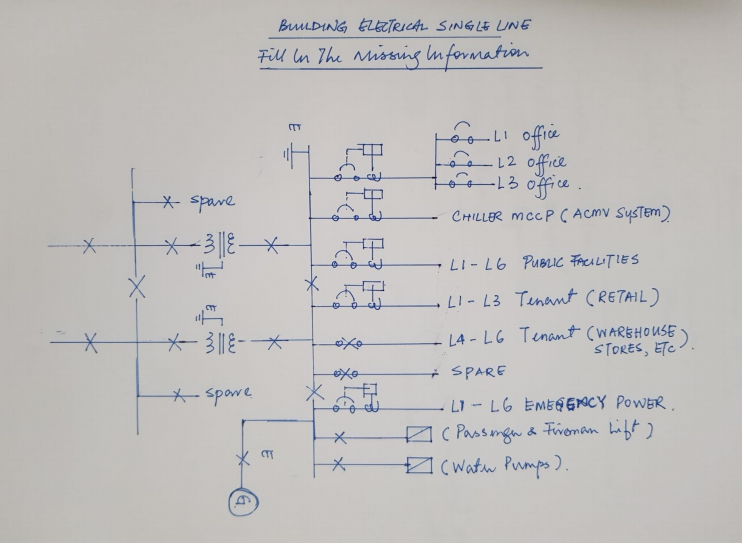 BUILDING ELECTRICAL SINGLE LINE
Fill In The Missing Information
E
L1 office
L2 office
L3 office.
spare
CHILLER MCCP (ACMV SYSTEM)
E
L1-L6 PUBLIC FACILITIES
E
L1-L3 Tenant (RETAIL)
L4-L6 Tenant (WAREHOUSE
STORES, ETC).
SPARE
spare
L1-L6 EMERGENCY POWER.
(Passenger & Fireman Lift)
E
(Water Pumps).
G